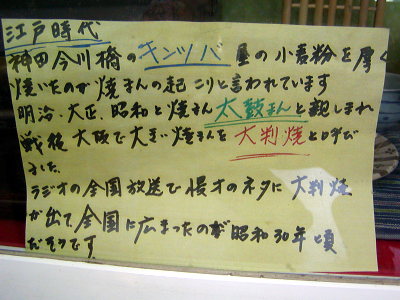 江戸時代
神田今川橋のキンツバ屋の小麦粉を厚く
焼いたのが焼まんの起こりと言われています
明治、大正、昭和と焼まん太鼓まんと親しまれ
戦後大阪で大きい焼まんを大判焼と呼び
ました
ラジオの全国放送で漫才のネタに大判焼
が出て全国に広まったのが昭和30年頃
だそうです